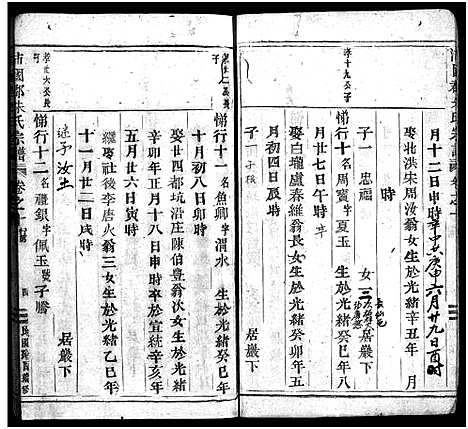 月十二日申時
六月廿九日酉時
娶北洪宋周汝翁女生於光緒辛丑年 月
時
子一 忠福 女二
孝十九公子
悌行十 名周寶字夏玉 生於光緒癸巳年八
月廿七日午時
娶白瓏盧春維翁長女生於光緒癸巳年
月初四日辰時
子一 居嚴下
悌行十一名魚卿字渭水 生於光緒癸巳年
十月初八日卯時
娶廿四都坑沿庄陳伯豊翁次女生於光緒
辛卯年正月十八日申時卒於宣統辛亥年
五月廿六日寅時
繼娶社後李唐火翁三女生於光緒乙巳年
十一月廿二日戌時
子汝土 居嚴下
悌行十二名禮銀字佩玉號子騰
浦國郡朱氏宗譜 卷之十一